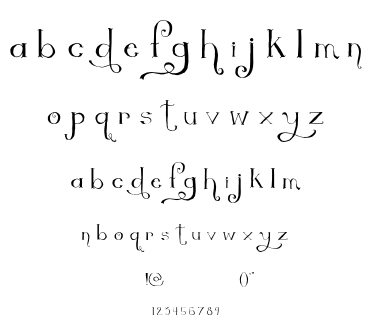 a b c d e f g h i j k l m n
o p q r s t u v w x y z
a b c d e f g h i j k l m
n b o q r s t u v w x y z
!@ ()"
123456789